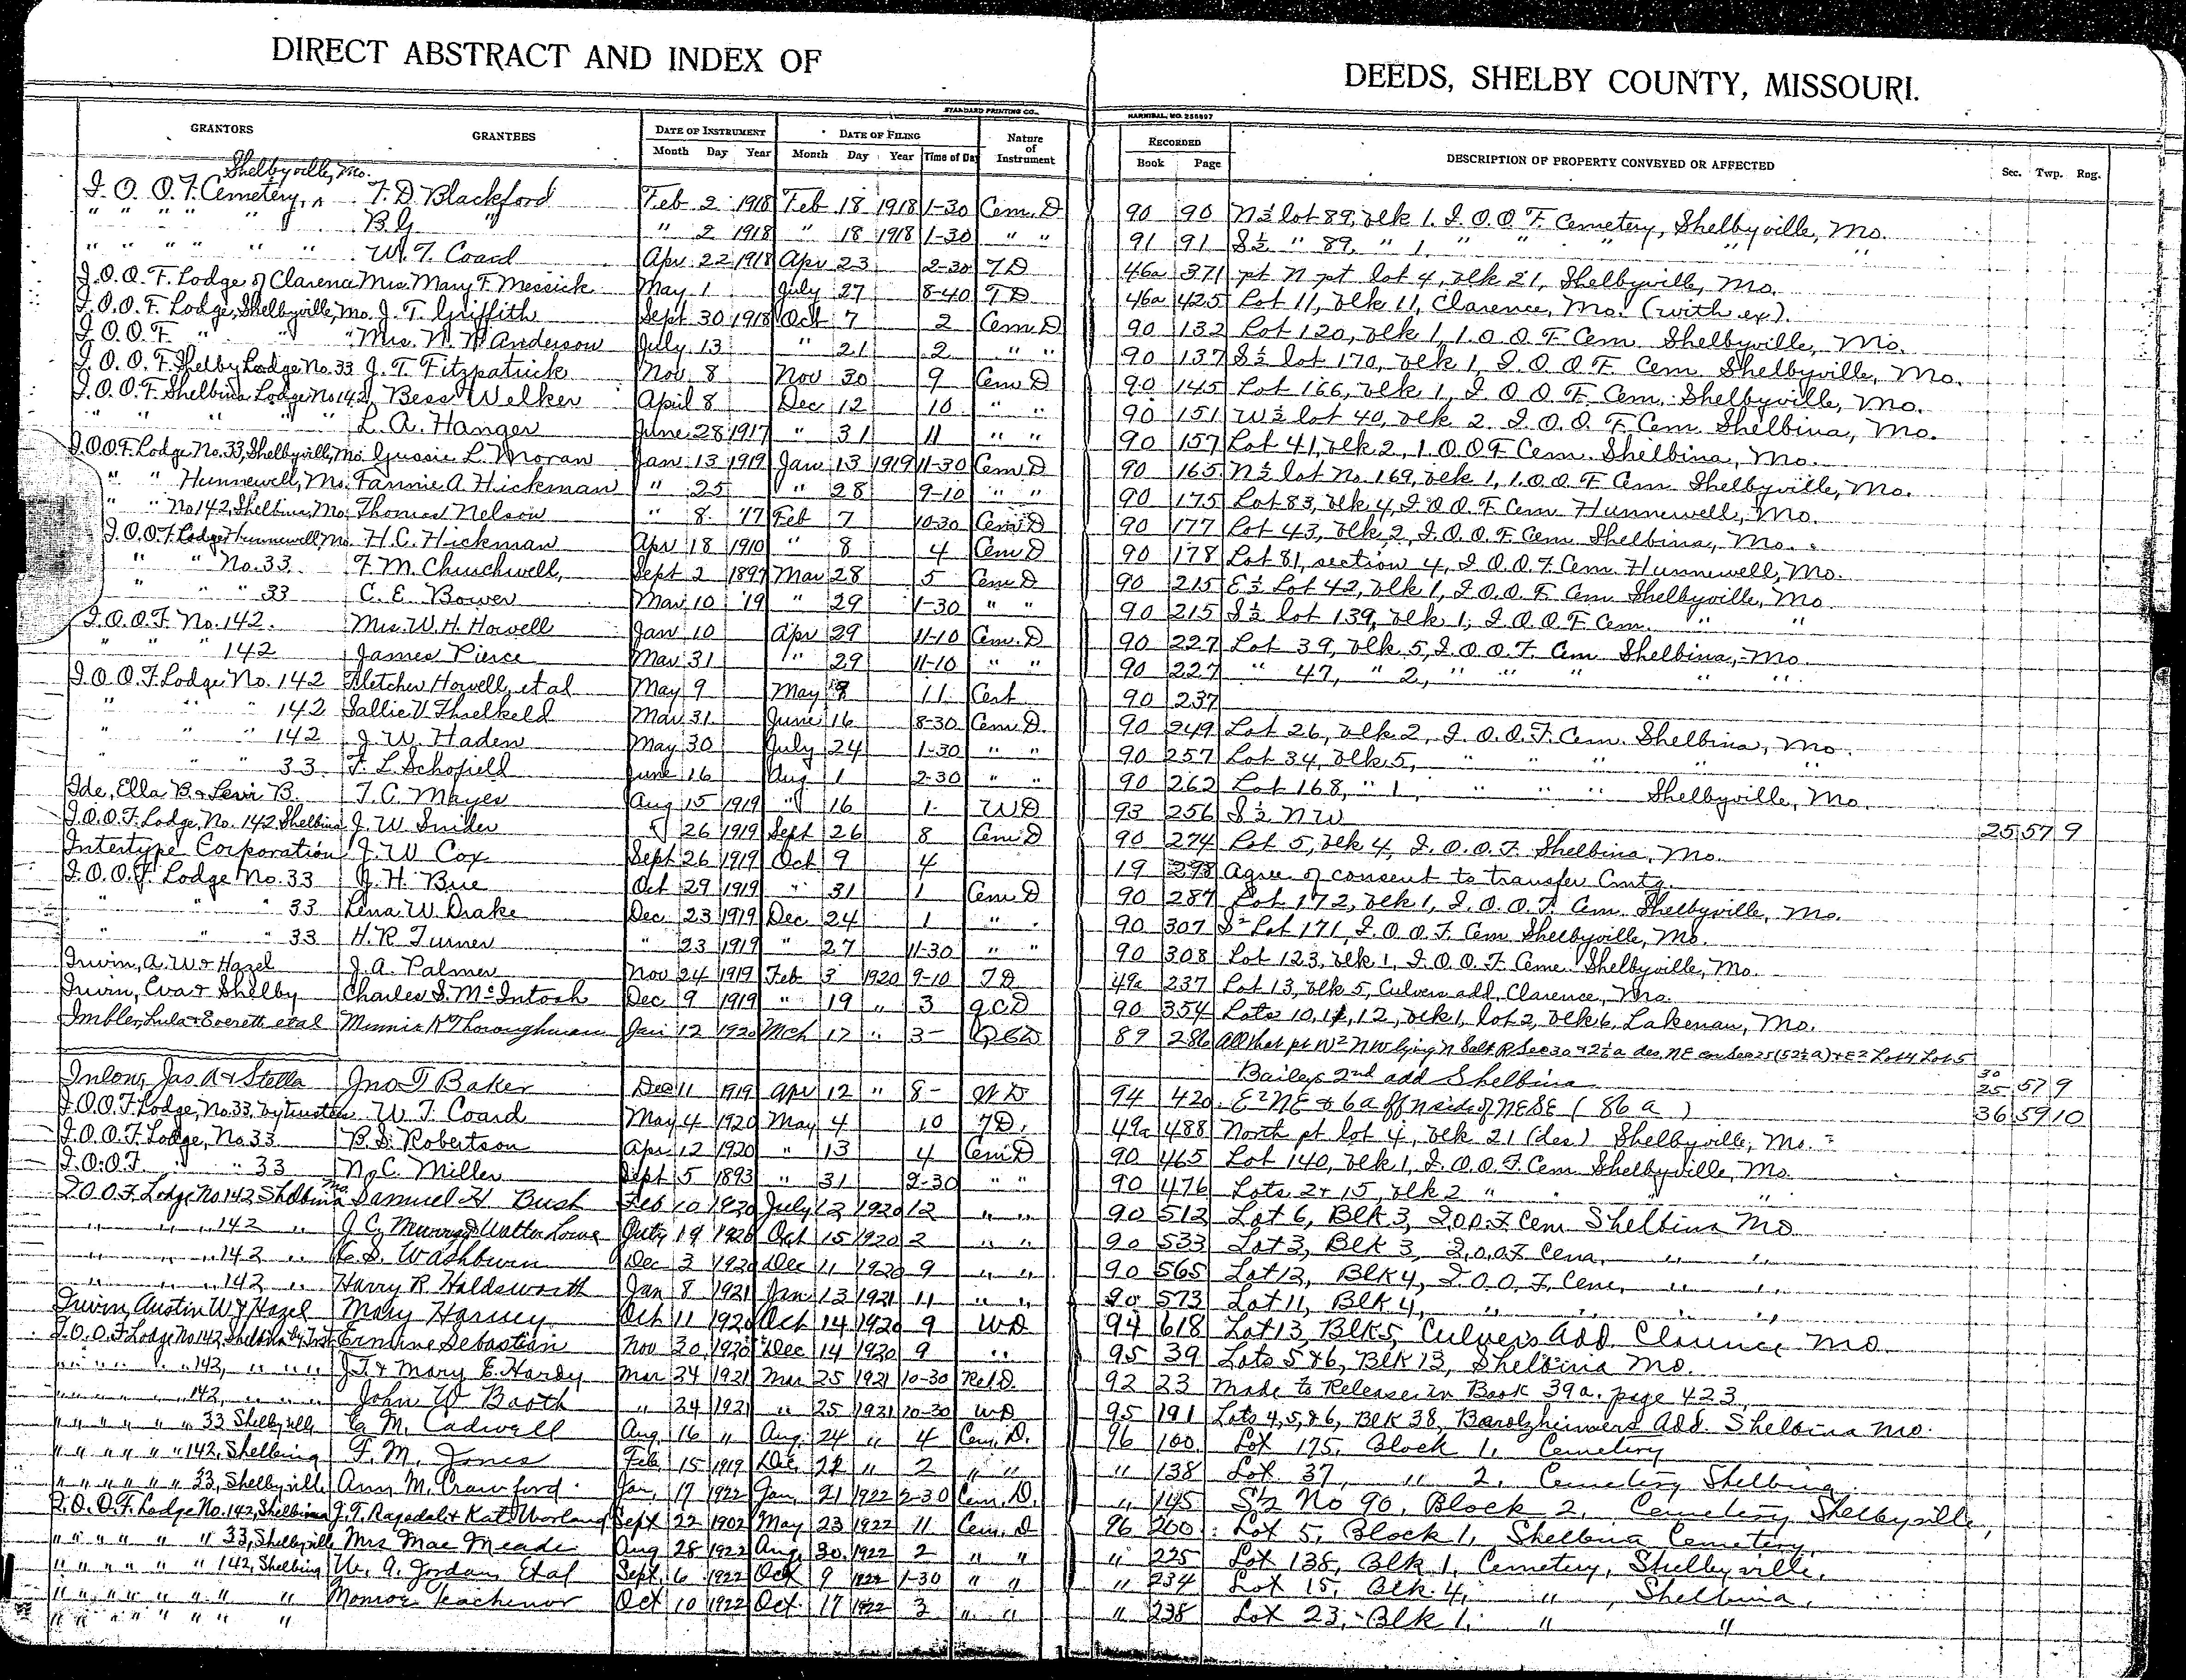 DIRECT ABSTRACT AND INDEX OF DEEDS, SHELBY COUNTY, MISSOURI.
STANDARD PRINTING CO., HANNIBAL, MO. 255897
GRANTORS GRANTEES DATE OF INSTRUMENT DATE OF FILING Nature of Instrument RECORDED DESCRIPTION OF PROPERTY CONVEYED OR AFFECTED Sec. Twp. Rng.
Month Day Year Month Day Year Time of Day Book Page
Shelbyville, Mo.
I. O. O. F. Cemetery, ^ F. D. Blackford Feb 2 1918 Feb 18 1918 1-30 Cem. D 90 90 N½ lot 89, blk 1. I. O. O. F. Cemetery, Shelbyville, Mo.
" " " " " B. G. " " 2 1918 " 18 1918 1-30 " " 91 91 S½ " 89, " 1, " " " "
" " " " " " W. T. Coard Apr 22 1918 Apr 23 2-30 T D 46a 371 pt N pt lot 4, blk 21, Shelbyville, Mo.
I. O. O. F. Lodge of Clarence Mrs. Mary F. Messick May 1 July 27 8-40 T D 46a 425 Lot 11, blk 11, Clarence, Mo. (with ex).
I. O. O. F. Lodge, Shelbyville, Mo. J. T. Griffith Sept 30 1918 Oct 7 2 Cem D 90 132 Lot 120, blk 1, I. O. O. F. Cem. Shelbyville, Mo.
I. O. O. F. " " " Mrs. N. W. Anderson July 13 " 21 2 " " 90 137 S½ lot 170, blk 1, I. O. O. F. Cem. Shelbyville, Mo.
I. O. O. F. Shelby Lodge No. 33 J. T. Fitzpatrick Nov 8 Nov 30 9 Cem D 90 145 Lot 166, blk 1, I. O. O. F. Cem. Shelbyville, Mo.
I. O. O. F. Shelbina Lodge No 142, Bess Welker April 8 Dec 12 10 " " 90 151 W½ lot 40, blk 2. I. O. O. F. Cem. Shelbina, Mo.
" " " " " L. A. Hanger June 28 1917 " 31 11 " " 90 157 Lot 41, blk 2, I. O. O. F. Cem. Shelbina, Mo.
I. O. O. F. Lodge No. 33, Shelbyville, Mo. Gussie L. Moran Jan 13 1919 Jan 13 1919 11-30 Cem D 90 165 N½ lot No. 169, blk 1, I. O. O. F. Cem. Shelbyville, Mo.
" " Hunnewell, Mo. Fannie A Hickman " 25 " 28 9-10 " " 90 175 Lot 83, blk 4, I. O. O. F. Cem. Hunnewell, Mo.
" " No 142, Shelbina, Mo. Thomas Nelson " 8 '17 Feb 7 10-30 Cem D 90 177 Lot 43, blk 2, I. O. O. F. Cem. Shelbina, Mo.
I. O. O. F. Lodge Hunnewell, Mo. H. C. Hickman Apr 18 1910 " 8 4 Cem D 90 178 Lot 81, section 4, I. O. O. F. Cem. Hunnewell, Mo.
" " No. 33 F. M. Churchwell, Sept 2 1897 Mar 28 5 Cem D 90 215 E½ Lot 42, blk 1, I. O. O. F. Cem. Shelbyville, Mo
" " " 33 C. E. Bower Mar 10 '19 " 29 1-30 " " 90 215 S½ lot 139, blk 1, I. O. O. F. Cem. " "
I. O. O. F. No. 142. Mrs. W. H. Howell Jan 10 Apr 29 11-10 Cem. D 90 227 Lot 39, blk 5, I. O. O. F. Cem Shelbina, Mo.
" " " 142 James Pierce Mar 31 " 29 11-10 " " 90 227 " 47, " 2, " " " " "
I. O. O. F. Lodge No. 142 Fletcher Howell, et al May 9 May 9 11 Cert 90 237
" " " 142 Sallie V. Threlkeld Mar 31 June 16 8-30 Cem D. 90 249 Lot 26, blk 2, I. O. O. F. Cem. Shelbina, Mo.
" " " 142 J. W. Haden May 30 July 24 1-30 " " 90 257 Lot 34, blk 5, " " " " "
" " " 33 F. L. Schofield June 16 Aug 1 2-30 " " 90 262 Lot 168, " 1, " " " Shelbyville, Mo.
Ide, Ella B. & Levi B. T. C. Mayes Aug 15 1919 " 16 1 W D 93 256 S½ N W 25 57 9
I. O. O. F. Lodge, No. 142 Shelbina J. W. Snider " 26 1919 Sept 26 8 Cem D 90 274 Lot 5, blk 4, I. O. O. F. Shelbina, Mo.
Intertype Corporation J. W. Cox Sept 26 1919 Oct 9 4 19 298 Agree. of consent to transfer Cmtg.
I. O. O. F. Lodge No. 33 J. H. Bue Oct 29 1919 " 31 1 Cem D 90 287 Lot 172, blk 1, I. O. O. F. Cem. Shelbyville, Mo.
" " " 33 Lena W. Drake Dec 23 1919 Dec 24 1 " " 90 307 S½ Lot 171, I. O. O. F. Cem. Shelbyville, Mo.
" " " 33 H. R. Turner " 23 1919 " 27 11-30 " " 90 308 Lot 123, blk 1, I. O. O. F. Cem. Shelbyville, Mo.
Irwin, A. W. & Hazel J. A. Palmer Nov 24 1919 Feb 3 1920 9-10 T D 49a 237 Lot 13, blk 5, Culvers add, Clarence, Mo.
Irwin, Eva & Shelby Charles S. McIntosh Dec 9 1919 " 19 " 3 Q C D 90 354 Lots 10, 11, 12, blk 1, lot 2, blk 6, Lakenan, Mo.
Imbler, Lula & Everett et al Minnie K Thoroughman Jan 12 1920 Mch 17 " 3- Q C D 89 286 All that pt W½ N W lying N Salt R Sec 30 & 2½ a des. NE cor Sec 25 (52½ a) & E½ Lot 4 Lot 5
Baileys 2nd add Shelbina 30 25 57 9
Inlow, Jas. A & Stella Jno T Baker Dec 11 1919 Apr 12 " 8- W D 94 420 E½ NE & 6 a off N side of NE SE (86 a) 36 59 10
I. O. O. F. Lodge, No. 33, by trustees W. T. Coard May 4 1920 May 4 10 T D. 49a 488 North pt lot 4, blk 21 (des) Shelbyville, Mo.
I. O. O. F. Lodge, No 33 B. S. Robertson Apr 12 1920 " 13 4 Cem D 90 465 Lot 140, blk 1, I. O. O. F. Cem. Shelbyville, Mo.
I. O. O. F. " " 33 N. C. Miller Sept 5 1893 " 31 9-30 " " 90 476 Lots 2 & 15, blk 2 " " " "
I. O. O. F. Lodge No 142 Shelbina Mo. Samuel H Bush Feb 10 1920 July 12 1920 12 " " 90 512 Lot 6, Blk 3, I. O. O. F. Cem Shelbina Mo
" " " 142 " J. C. Murray & Walter Lowe July 19 1920 Oct 15 1920 2 " " 90 533 Lot 3, Blk 3, I. O. O. F. Cem, " "
" " " 142 " C. S. Washburn Dec 3 1920 Dec 11 1920 9 " " 90 565 Lot 12, Blk 4, I. O. O. F. Cem, " "
" " " 142 " Harry R. Holdsworth Jan 8 1921 Jan 13 1921 11 " " 90 573 Lot 11, Blk 4, " " " "
Irwin, Austin W & Hazel Mary Harvey Oct 11 1920 Oct 14 1920 9 W D 94 618 Lot 13 Blk 5 Culvers Add Clarence Mo
I. O. O. F. Lodge No 142, Shelbina by Trst Ermine Sebastian Nov 30 1920 Dec 14 1920 9 " 95 39 Lots 5 & 6, Blk 13, Shelbina Mo.
" " " " 142, " " " J. T. & Mary E. Hardy Mar 24 1921 Mar 25 1921 10-30 Rel D. 92 23 Made to Release in Book 39a. page 423
" " " " 142, " " " John W Booth " 24 1921 " 25 1921 10-30 W D 95 191 Lots 4, 5, & 6, Blk 38, Barolzheimers Add. Shelbina Mo.
" " " " " " 33 Shelbyville C. M. Cadwell Aug. 16 " Aug. 24 " 4 Cem. D. 96 100 Lot 175, Block 1, Cemetery
" " " " " " 142, Shelbina F. M. Jones Feb. 15 1919 Dec. 22 " 2 " " " 138 Lot 37, " 2, Cemetery Shelbina,
" " " " " " 33, Shelbyville Ann M. Crawford Jan. 17 1922 Jan. 21 1922 2-30 Cem. D. " 145 S½ No 90, Block 2, Cemetery Shelbyville,
I. O. O. F. Lodge No. 142, Shelbina J. T. Ragsdale & Kate Worland Sept 22 1902 May 23 1922 11 Cem. D 96 200 Lot 5, Block 1, Shelbina Cemetery,
" " " " " " 33, Shelbyville Mrs Mae Meade Aug 28 1922 Aug. 30 1922 2 " " " 225 Lot 138, Blk 1, Cemetery, Shelbyville,
" " " " " " 142, Shelbina W. A. Jordan Etal Sept. 6 1922 Oct 9 1922 1-30 " " " 234 Lot 15, Blk. 4, " , Shelbina,
" " " " " " " Monroe Oct 10 1922 Oct. 17 1922 3 " " " 238 Lot 23, Blk 1, " "
" " " " " " "